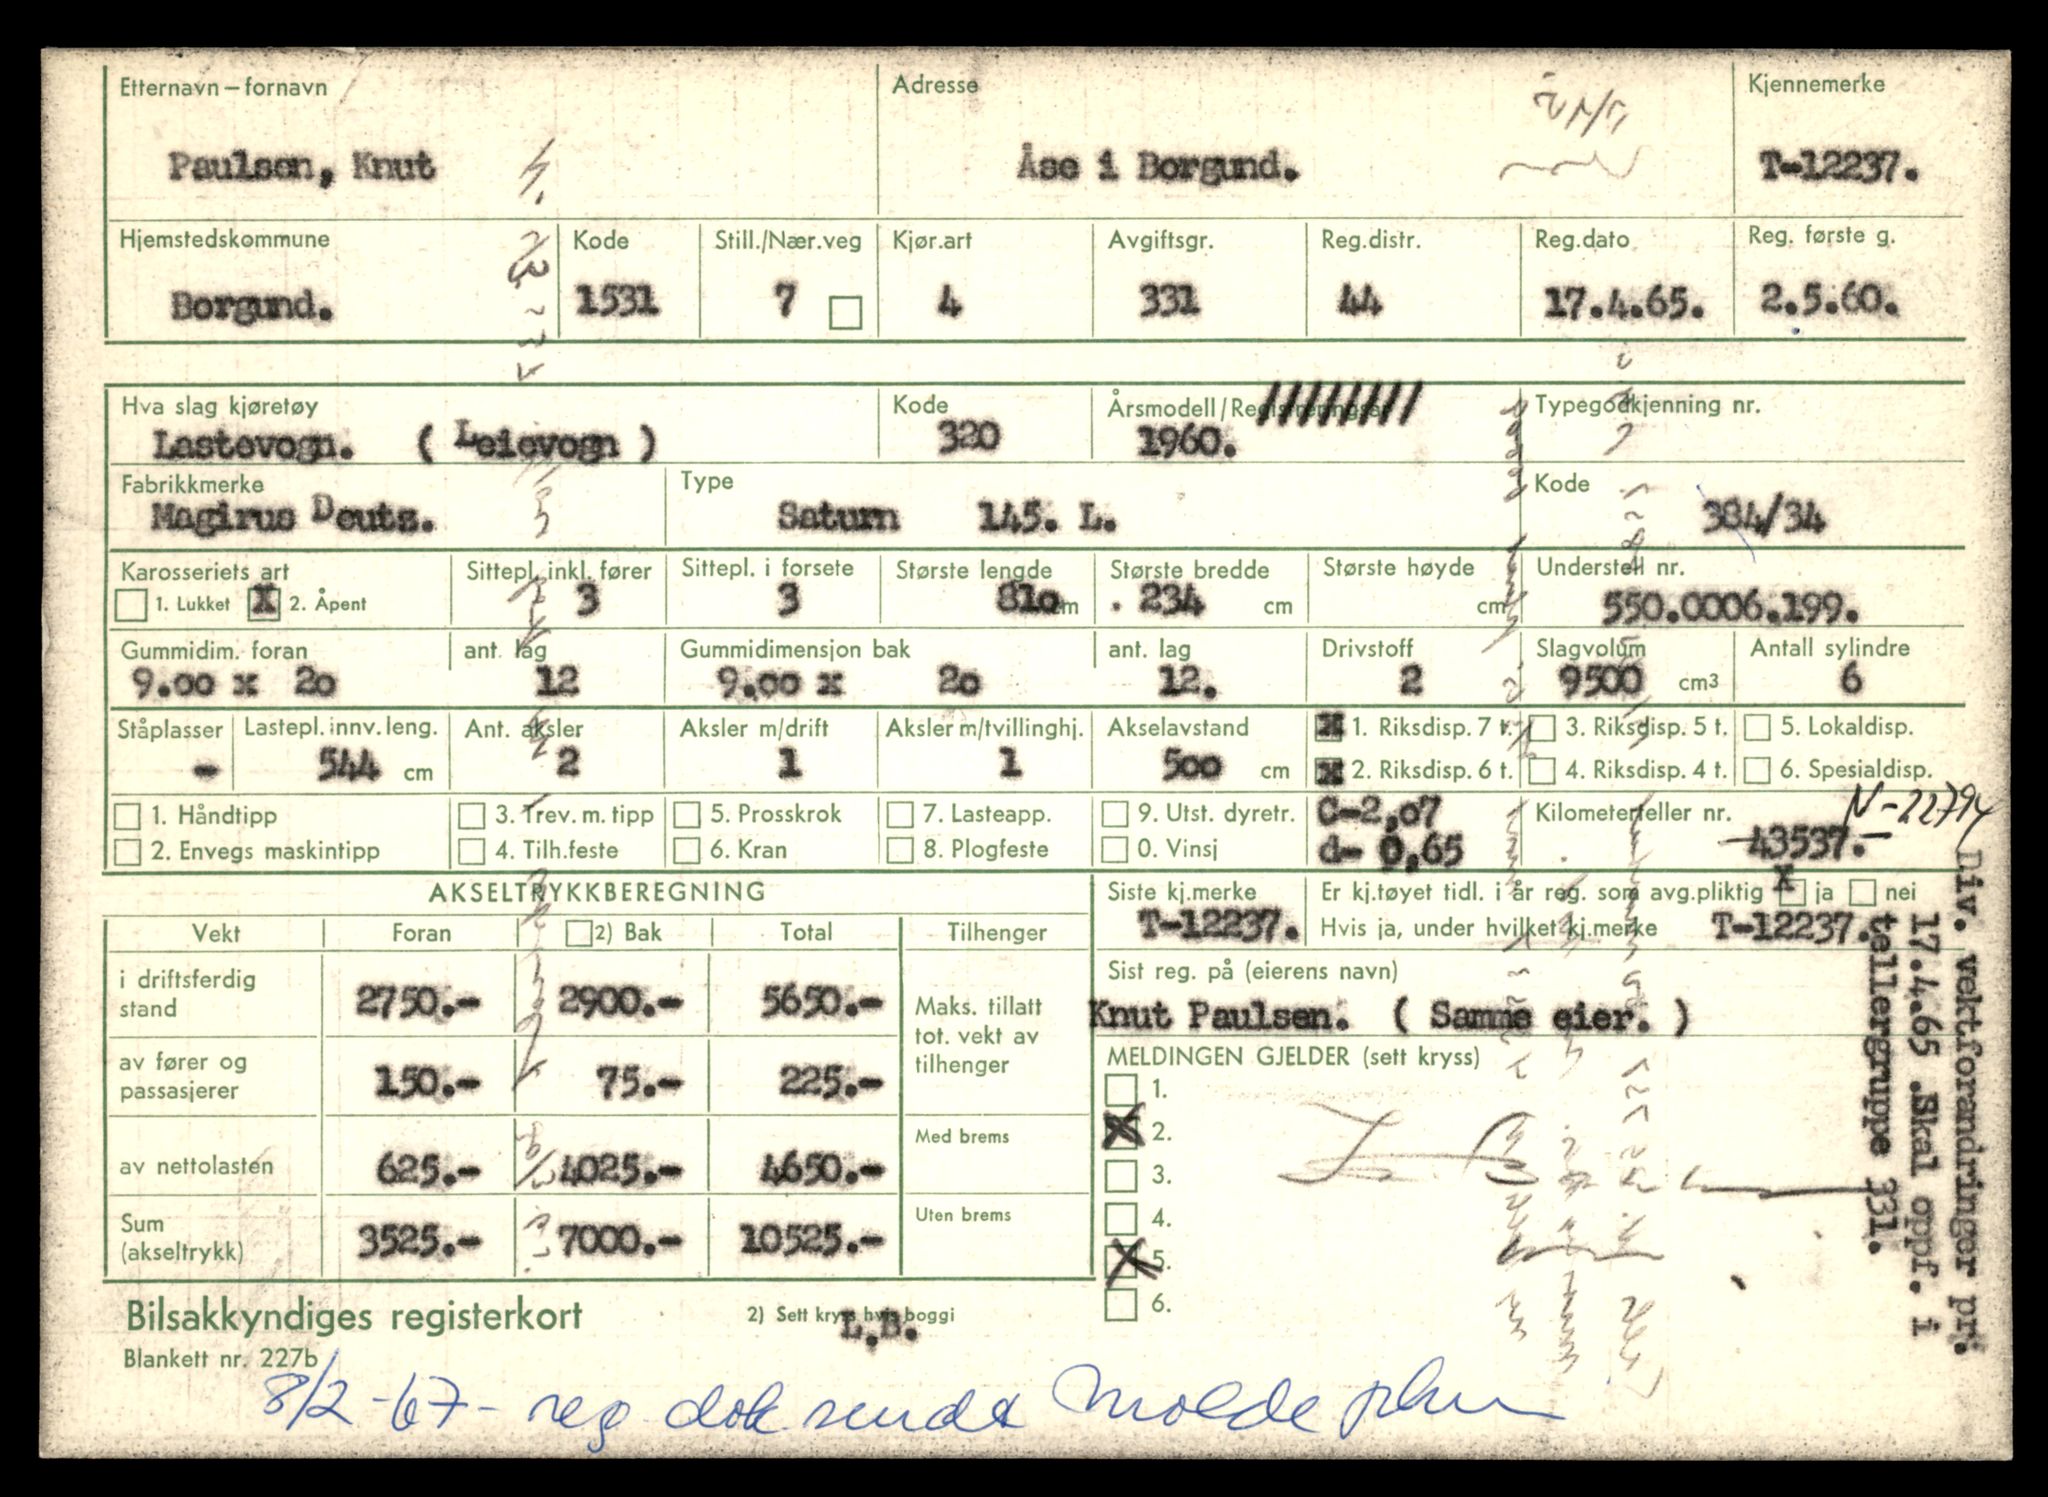 Etternavn – fornavn Adresse Kjennemerke
Paulsen, Knut Åse i Borgund. T-12237.
Hjemstedskommune Kode Still./Nær.veg Kjør.art Avgiftsgr. Reg.distr. Reg.dato Reg. første g.
Borgund. 1531 7 4 331 44 17.4.65. 2.5.60.
Hva slag kjøretøy Kode Årsmodell/Registreringsår Typegodkjenning nr.
Lastevogn. ( Leievogn ) 320 1960.
Fabrikkmerke Type Kode
Magirus Deutz. Saturn 145. L. 384/34
Karosseriets art Sittepl. inkl. fører Sittepl. i forsete Største lengde Største bredde Største høyde Understell nr.
1. Lukket X 2. Åpent 3 3 810 cm . 234 cm cm 550.0006.199.
Gummidim. foran ant. lag Gummidimensjon bak ant. lag Drivstoff Slagvolum Antall sylindre
9.00 x 20 12 9.00 x 20 12. 2 9500 cm3 6
Ståplasser Lastepl. innv. leng. Ant. aksler Aksler m/drift Aksler m/tvillinghj. Akselavstand X 1. Riksdisp. 7 t. 3. Riksdisp. 5 t. 5. Lokaldisp.
- 544 cm 2 1 1 500 cm X 2. Riksdisp. 6 t. 4. Riksdisp. 4 t. 6. Spesialdisp.
1. Håndtipp 3. Trev. m. tipp 5. Prosskrok 7. Lasteapp. 9. Utst. dyretr. C-2,07 Kilometerteller nr. N-22794
2. Envegs maskintipp 4. Tilh.feste 6. Kran 8. Plogfeste 0. Vinsj d- 0,65 43537.-
AKSELTRYKKBEREGNING
Vekt Foran 2) Bak Total Tilhenger
i driftsferdig stand 2750.- 2900.- 5650.-
Maks. tillatt
tot. vekt av
tilhenger
av fører og passasjerer 150.- 75.- 225.-
av nettolasten 625.- 4025.- 4650.- Med brems
Sum (akseltrykk) 3525.- 7000.- 10525.- Uten brems
Siste kj.merke Er kj.tøyet tidl. i år reg. som avg.pliktig X ja nei
T-12237. Hvis ja, under hvilket kj.merke T-12237.
Sist reg. på (eierens navn)
Knut Paulsen. ( Samme eier. )
MELDINGEN GJELDER (sett kryss)
1.
X 2.
3.
4.
X 5.
6.
Div. vektforandringer pr.
17.4.65 .Skal oppf. i
tellergruppe 331.
Bilsakkyndiges registerkort 2) Sett kryss hvis boggi
L.B.
Blankett nr. 227b
8/2-67- reg. dok. sendt Molde